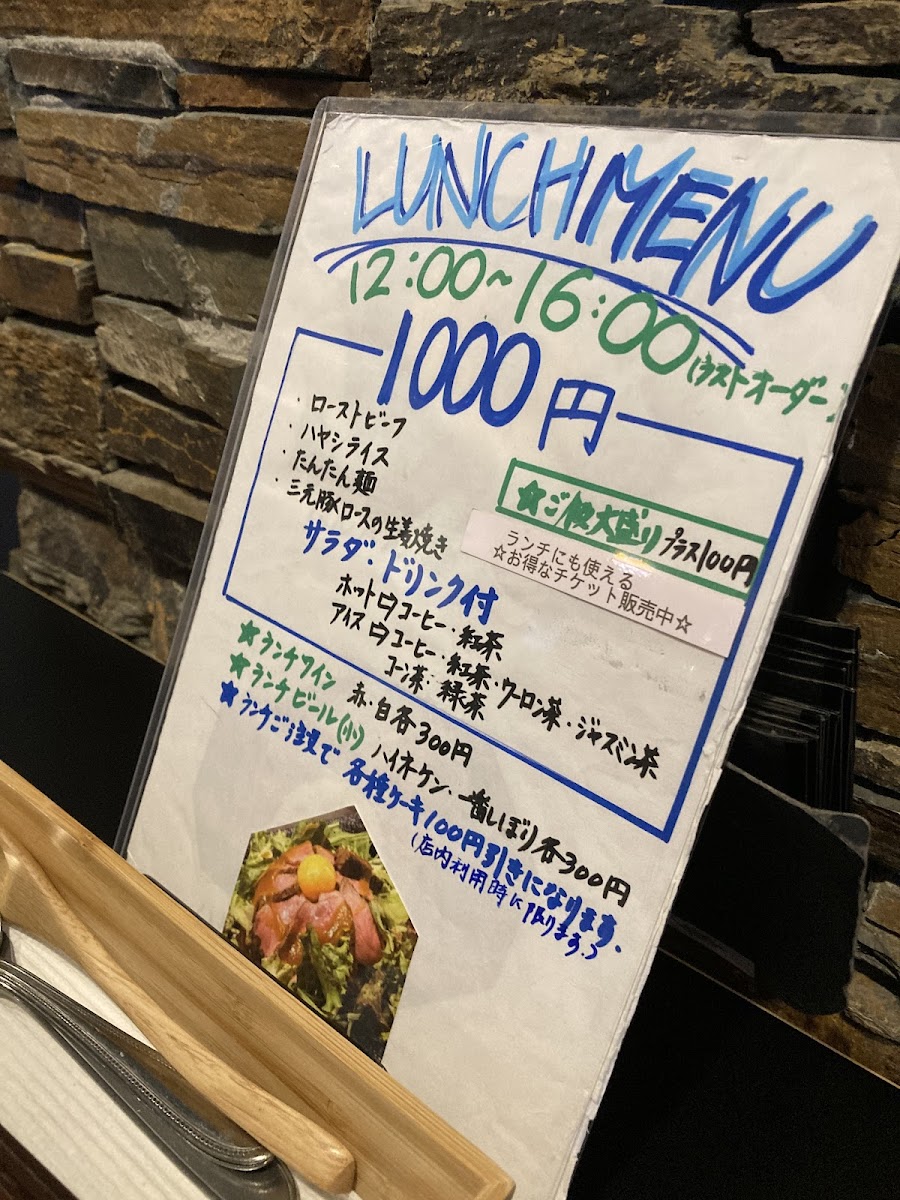 LUNCH MENU
12:00~16:00(ラストオーダー)
1000円
・ローストビーフ
・ハヤシライス
・たんたん麺
・三元豚ロースの生姜焼き
☆ご飯大盛り プラス100円
ランチにも使える
☆お得なチケット販売中☆
サラダ・ドリンク付
ホット⇨コーヒー・紅茶
アイス⇨コーヒー・紅茶・ウーロン茶・ジャスミン茶
コーン茶・緑茶
★ランチワイン 赤・白各300円
★ランチビール(小) ハイネケン・一番しぼり各300円
★ランチご注文で 各種ケーキ100円引きになります。
(店内利用時に限ります。)